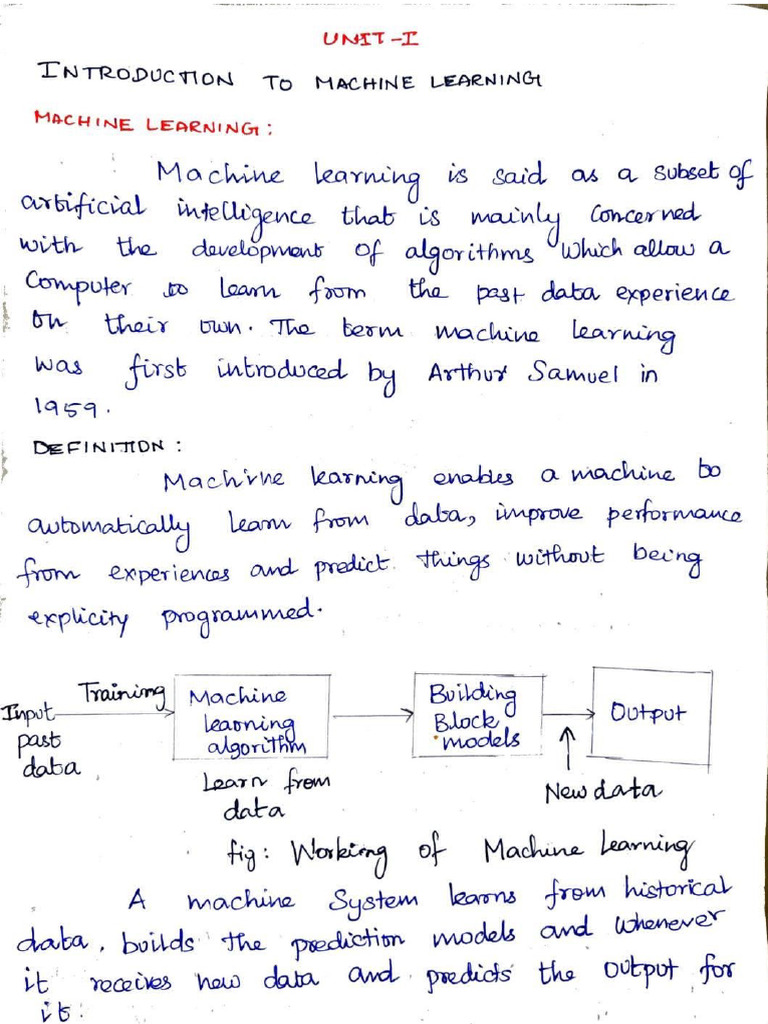 UNIT-I
INTRODUCTION TO MACHINE LEARNING
MACHINE LEARNING:
Machine learning is said as a subset of
artificial intelligence that is mainly concerned
with the development of algorithms which allow a
Computer to learn from the past data experience
on their own. The term machine learning
was first introduced by Arthur Samuel in
1959.
DEFINITION:
Machine learning enables a machine to
automatically learn from data, improve performance
from experiences and predict things without being
explicity programmed.
Input past data
Training
Machine learning algorithm
Learn from data
Building Block models
New data
Output
fig: Working of Machine Learning
A machine System learns from historical
data, builds the prediction models and whenever
it receives new data and predicts the output for
it.